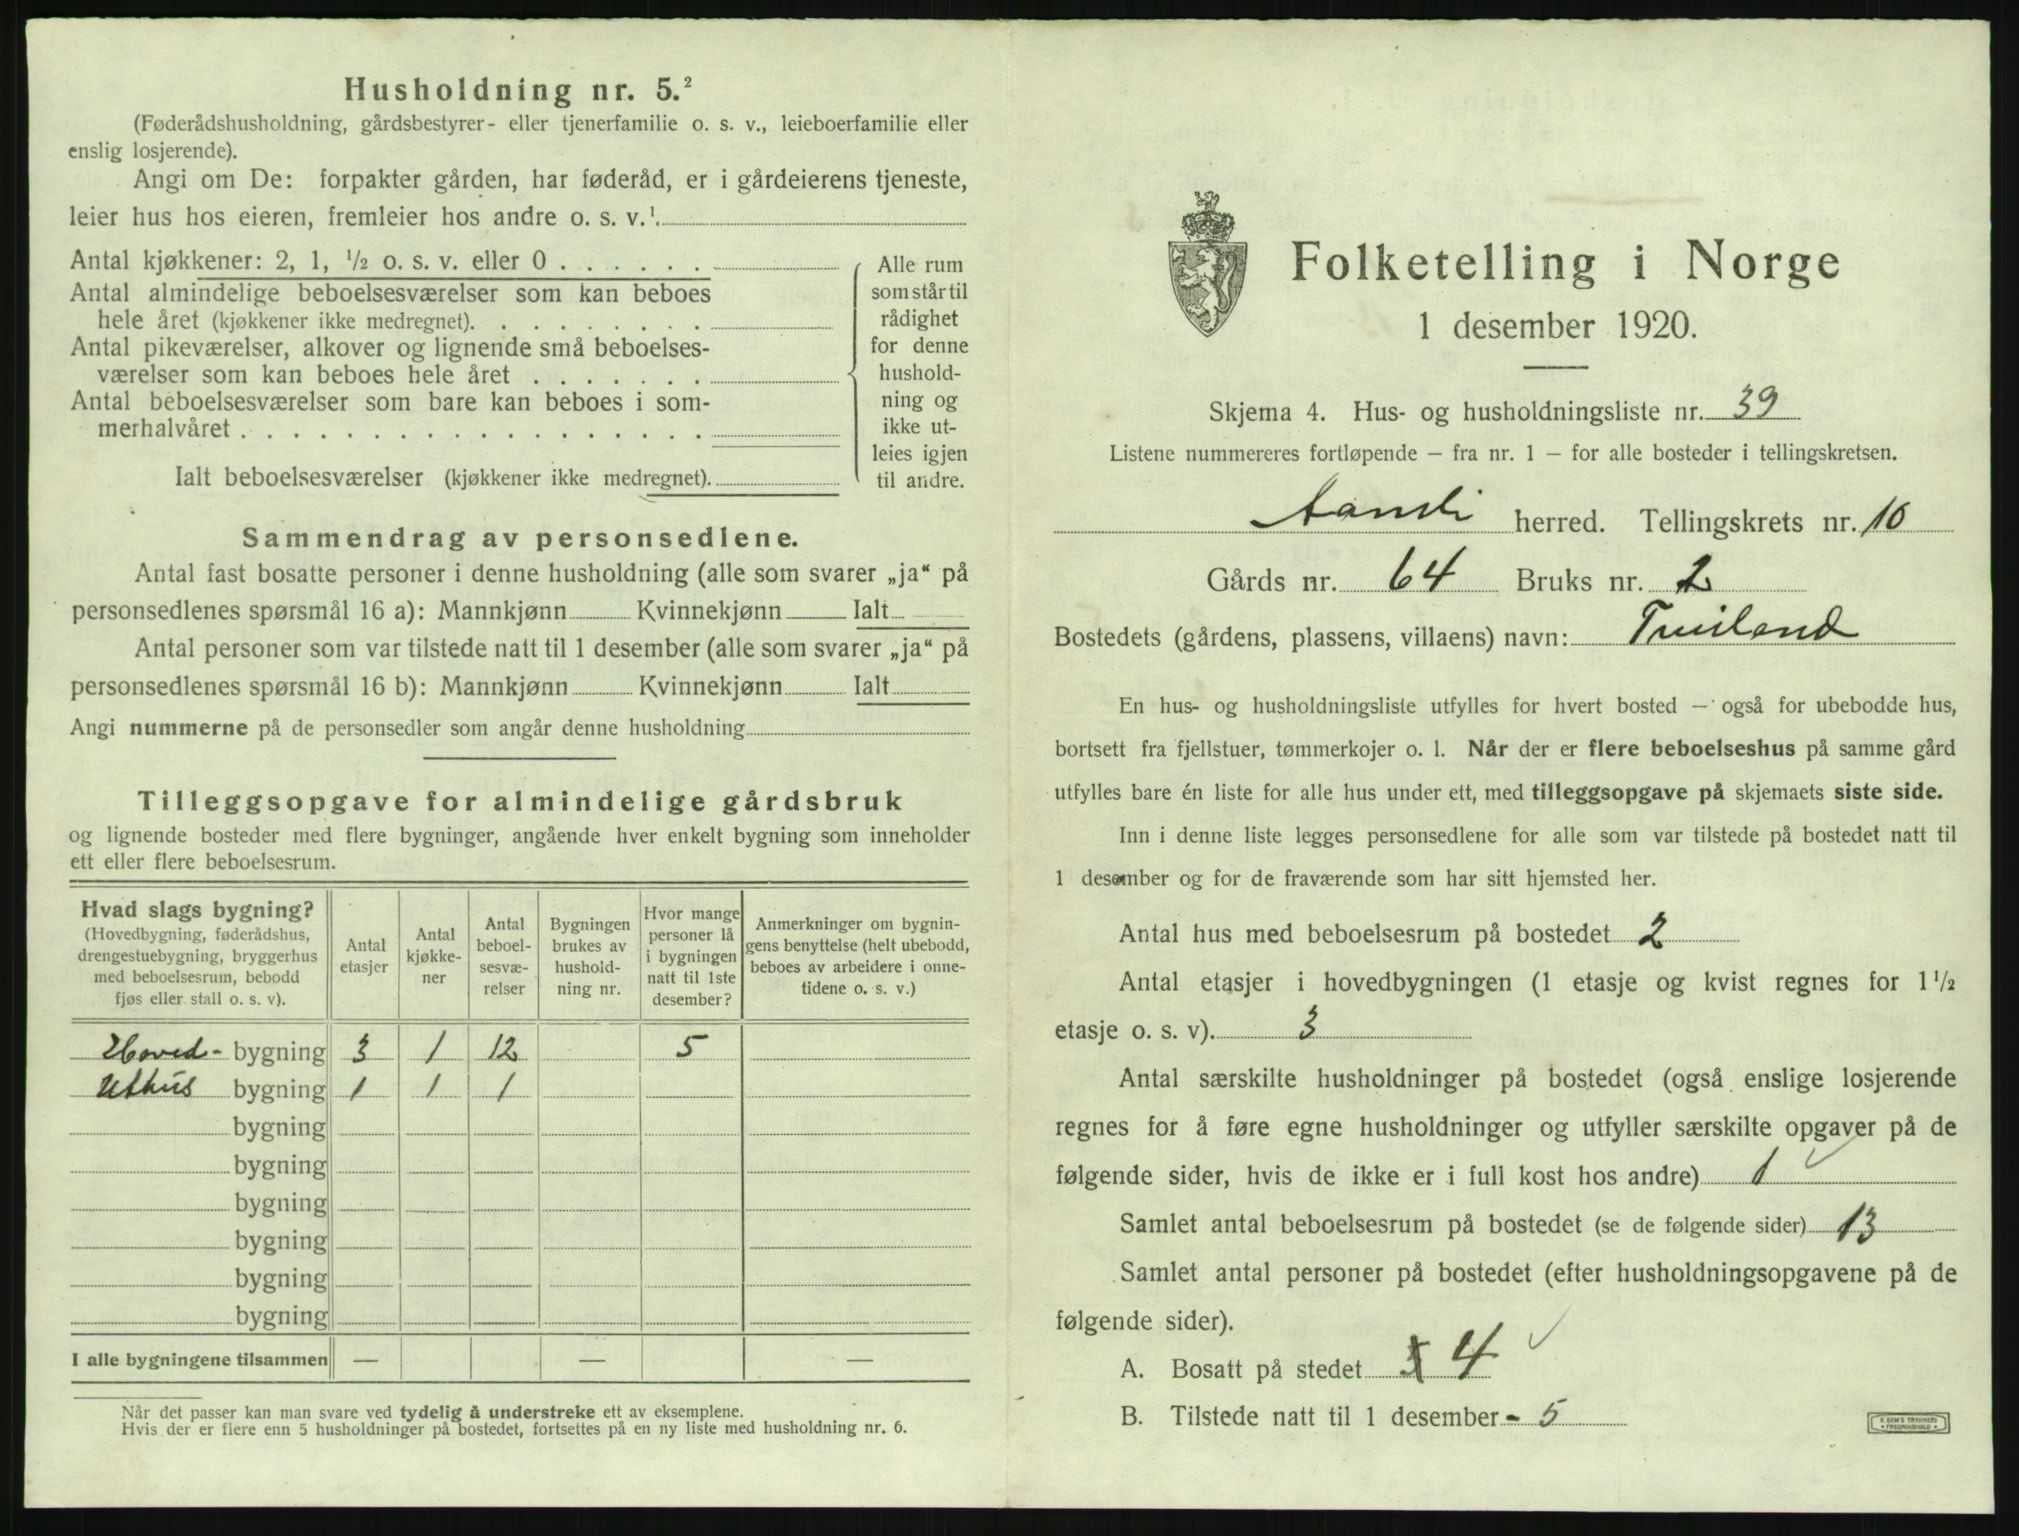 Husholdning nr. 5.²
(Føderådshusholdning, gårdsbestyrer- eller tjenerfamilie o. s. v., leieboerfamilie eller
enslig losjerende).
Angi om De: forpakter gården, har føderåd, er i gårdeierens tjeneste,
leier hus hos eieren, fremleier hos andre o. s. v.¹.
Antal kjøkkener: 2, 1, ½ o. s. v. eller 0
Antal almindelige beboelsesværelser som kan beboes
hele året (kjøkkener ikke medregnet).
Antal pikeværelser, alkover og lignende små beboelses-
værelser som kan beboes hele året
Antal beboelsesværelser som bare kan beboes i som-
merhalvåret
Ialt beboelsesværelser (kjøkkener ikke medregnet).
Alle rum
som står til
rådighet
for denne
hushold-
ning og
ikke ut-
leies igjen
til andre.
Sammendrag av personsedlene.
Antal fast bosatte personer i denne husholdning (alle som svarer „ja“ på
personsedlenes spørsmål 16 a): Mannkjønn Kvinnekjønn Ialt
Antal personer som var tilstede natt til 1 desember (alle som svarer „ja“ på
personsedlenes spørsmål 16 b): Mannkjønn Kvinnekjønn Ialt
Angi nummerne på de personsedler som angår denne husholdning
Tilleggsopgave for almindelige gårdsbruk
og lignende bosteder med flere bygninger, angående hver enkelt bygning som inneholder
ett eller flere beboelsesrum.
Hvad slags bygning?
(Hovedbygning, føderådshus,
drengestuebygning, bryggerhus
med beboelsesrum, bebodd
fjøs eller stall o. s. v).
Antal
etasjer
Antal
kjøkke-
ner
Antal
beboel-
sesvæ-
relser
Bygningen
brukes av
hushold-
ning nr.
Hvor mange
personer lå
i bygningen
natt til 1ste
desember?
Anmerkninger om bygnin-
gens benyttelse (helt ubebodd,
beboes av arbeidere i onne-
tidene o. s. v.)
Hoved- bygning 3 1 12 5
Uthus bygning 1 1 1
bygning
bygning
bygning
bygning
bygning
bygning
I alle bygningene tilsammen — — —
Når det passer kan man svare ved tydelig å understreke ett av eksemplene.
Hvis der er flere enn 5 husholdninger på bostedet, fortsettes på en ny liste med husholdning nr. 6.
Folketelling i Norge
1 desember 1920.
Skjema 4. Hus- og husholdningsliste nr. 39
Listene nummereres fortløpende – fra nr. 1 – for alle bosteder i tellingskretsen.
Aamli herred. Tellingskrets nr. 10
Gårds nr. 64 Bruks nr. 2
Bostedets (gårdens, plassens, villaens) navn:
En hus- og husholdningsliste utfylles for hvert bosted – også for ubebodde hus,
bortsett fra fjellstuer, tømmerkojer o. l. Når der er flere beboelseshus på samme gård
utfylles bare én liste for alle hus under ett, med tilleggsopgave på skjemaets siste side.
Inn i denne liste legges personsedlene for alle som var tilstede på bostedet natt til
1 desember og for de fraværende som har sitt hjemsted her.
Antal hus med beboelsesrum på bostedet 2
Antal etasjer i hovedbygningen (1 etasje og kvist regnes for 1½
etasje o. s. v). 3
Antal særskilte husholdninger på bostedet (også enslige losjerende
regnes for å føre egne husholdninger og utfyller særskilte opgaver på de
følgende sider, hvis de ikke er i full kost hos andre) 1
Samlet antal beboelsesrum på bostedet (se de følgende sider) 13
Samlet antal personer på bostedet (efter husholdningsopgavene på de
følgende sider).
A. Bosatt på stedet 4
B. Tilstede natt til 1 desember - 5
E. SEM'S TRYKKERI
• FREDRIKSHALD •